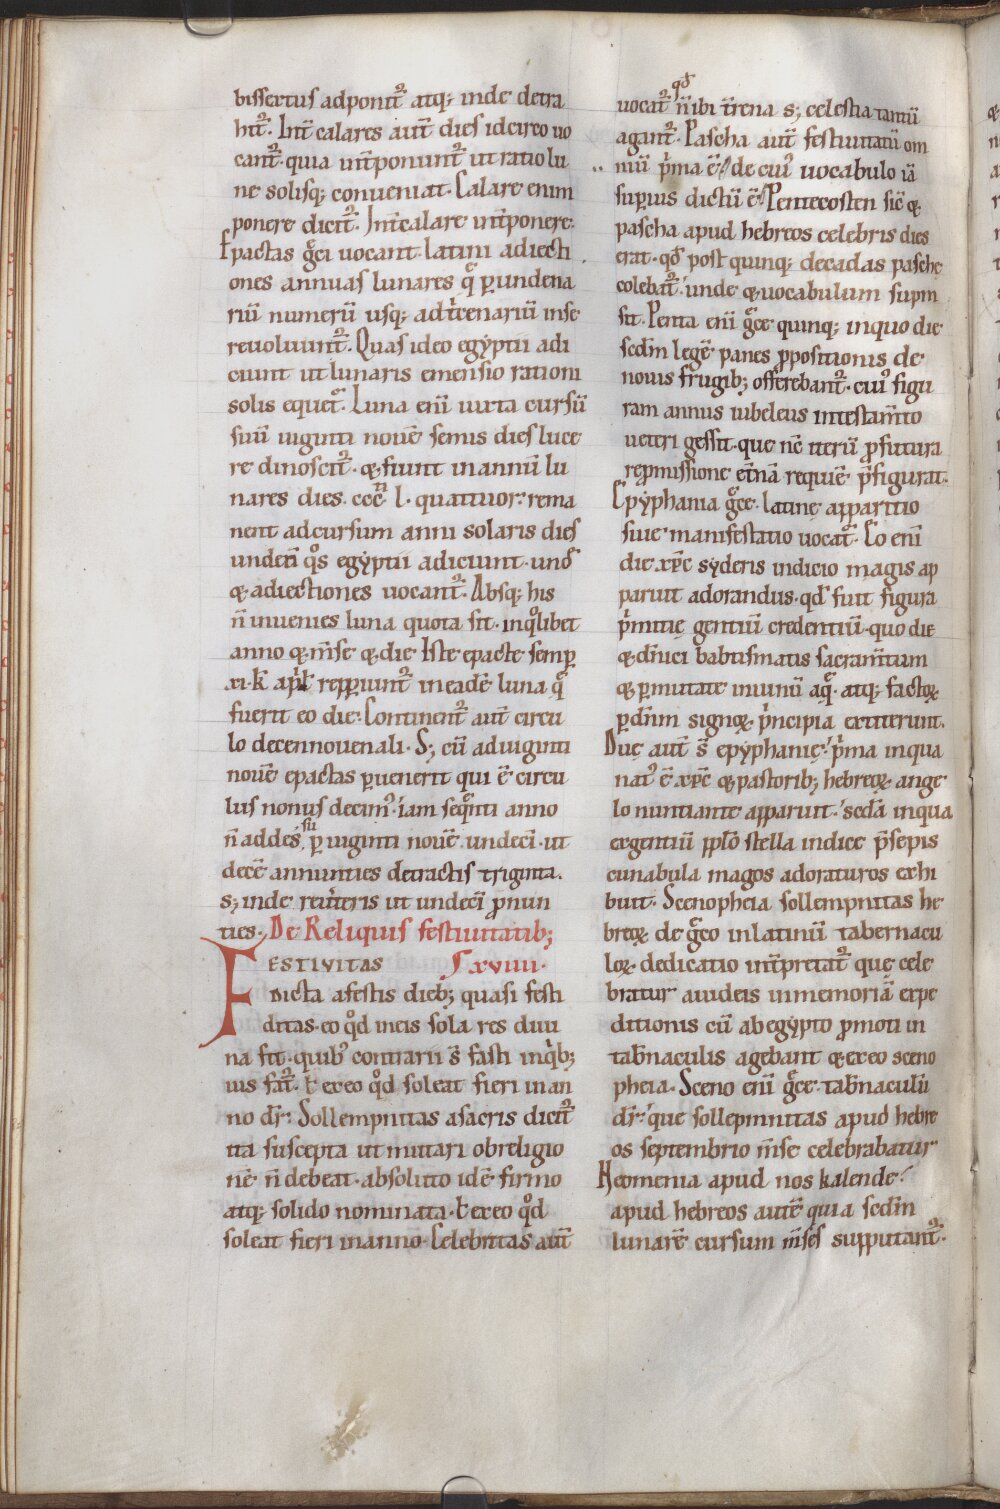 bissextus adponit᷑ atq; inde detra
hit᷑. Int̄calares aut̄ dies idcirco uo
cant᷑. quia int̄ponunt᷑ ut ratio lu
ne solisq; conueniat. Calare enim
ponere dicit᷑. Int̄calare int̄ponere.
Epactas gͣci uocant. latini adiecti
ones annuas lunares qͣ p̱ undena
riū numerū usq; ad tⁱcenariū in se
reuoluunt᷑. Quas ideo egẏptii adi
ciunt ut lunaris emensio rationi
solis equetᷓ. Luna eni̅ iuxta cursū
suū uiginti nouē semis dies luce
re dinoscit᷑. & fiunt in annū lu
nares dies. ccc̄ⁿ l. quattuor. rema
nent ad cursum anni solaris dies
undeci̅ qͦs egẏptii adiciunt. und̄
& adiectiones uocant᷑. Absq; his
n̄ inuenies luna quota sit. in qͦlibet
anno & m̄se & die Iste epacte semp̱
.xi. k̄ apⁱł repp̱iunt᷑ in eadē luna qͣ
fuerit eo die. Continent᷑ aut̄ circu
lo decennouenali. S; cū ad uiginti
nouē epactas p̱uenerit qui ē circu
lus nonus decimꝰ. iam seqͣnti anno
n̄ addes sup̱ uiginti nouē. undeci̅. ut
decē annunties detractis triginta.
s; inde reuⁱteris ut undeci̅ ꝓnun
ties. De Reliquis festiuitatib;
FESTIVITAS Cxviiii.
dicta a festis dieb; quasi festi
ditas. eo qͦd in eis sola res diui
na fit. quibꝰ contrarii s̄ fasti in qⁱb;
ius fat᷑. ł ex eo qͦd soleat fieri in an
no dr̄. Sollempnitas a sacris dicit᷑
ita suscepta ut mutari ob religio
nē n̄ debeat. ab solito idē firmo
atq; solido nominata. ł ex eo qͦd
soleat fieri in anno. Celebritas aut̄
uocat᷑ qđ n̄ ibi t̄rena s; celestia tantū
agant᷑. Pascha aut̄ festiuitatū om
niū pⁱma ē. de cuiꝰ uocabulo iā
sup̱ius dictū ē. Pentecosten sic̄ &
pascha apud hebreos celebris dies
erat. qđ post quinq; decadas pasche
colebat᷑. unde & uocabulum sump
sit. Penta eni̅ gͣce quinq; in quo die
scdm̄ legē panes ꝓpositionis de
nouis frugib; offerebant᷑. cuiꝰ figu
ram annus iubeleus in testam̄to
ueteri gessit. que nc̄ iterū ꝓ futura
repmissione et̄nā requiē p̄figurat.
Epẏphania gͣce. latinę apparitio
siue manifestatio uocatᷓ. Eo eni̅
die xp̄c sẏderis indicio magis ap
paruit adorandus. qđ fuit figura
pⁱmitię gentiū credentiū. quo die
& dn̄ici babtismatis sacram̄tum
& p̱mutatę in uinū aqͣ. atq; factoꝝ
p̱ dn̄m signoꝝ. pⁱncipia extiterunt.
Duę aut̄ s̄ epẏphanię. pⁱma in qua
natꝰ ē xp̄c & pastorib; hebreoꝝ. ange
lo nuntiante apparuit. scdā in qua
ex gentiū pp̄lo stella indice p̄sepis
cunabula magos adoraturos exhi
buit. Scenopheia sollempnitas he
breoꝝ de gͣco in latinū tabernacu
loꝝ dedicatio int̄pretat᷑. quę cele
bratur a iudeis in memoriā expe
ditionis cū ab egẏpto ꝓmoti in
tab̄naculis agebant & ex eo sceno
pheia. Sceno eni̅ gͣce. tab̄naculū
dr̄. que sollepmnitas apud hebre
os septembrio m̄se celebrabatur
Neomenia apud nos kalende.
apud hebreos autē quia scdm̄
lunarē cursum m̄ses supputant᷑.